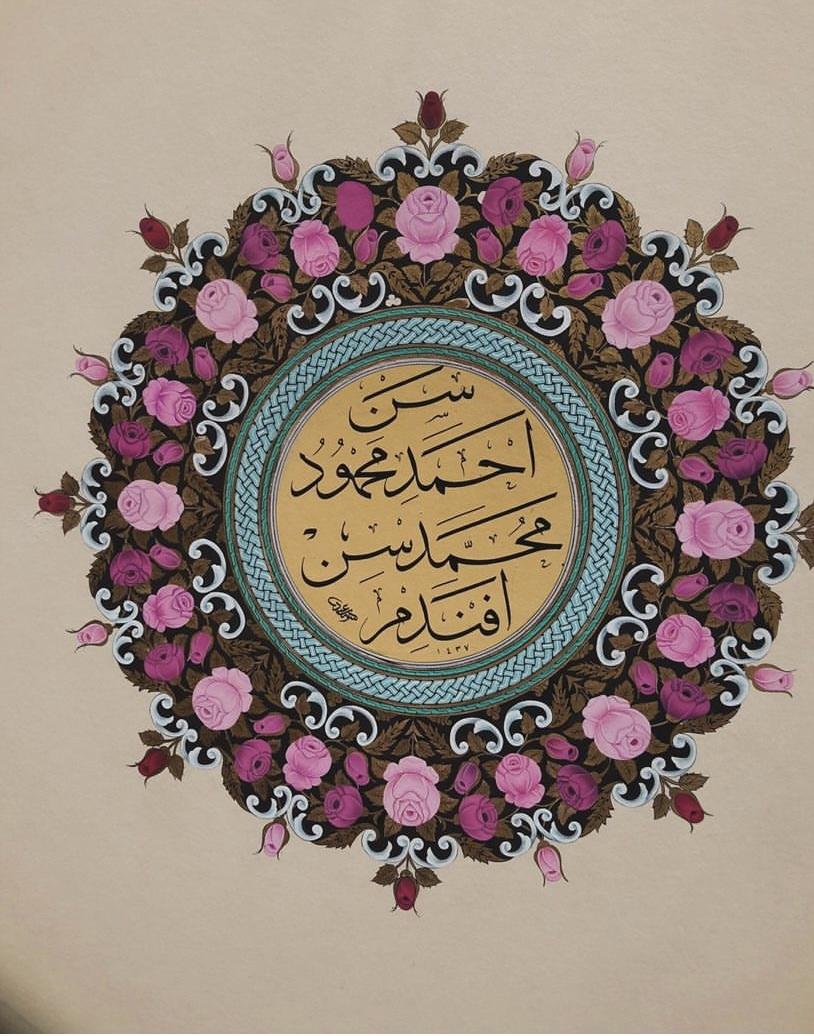 سن
احمد محمود
محمد سن
افندم
١٤٣٧